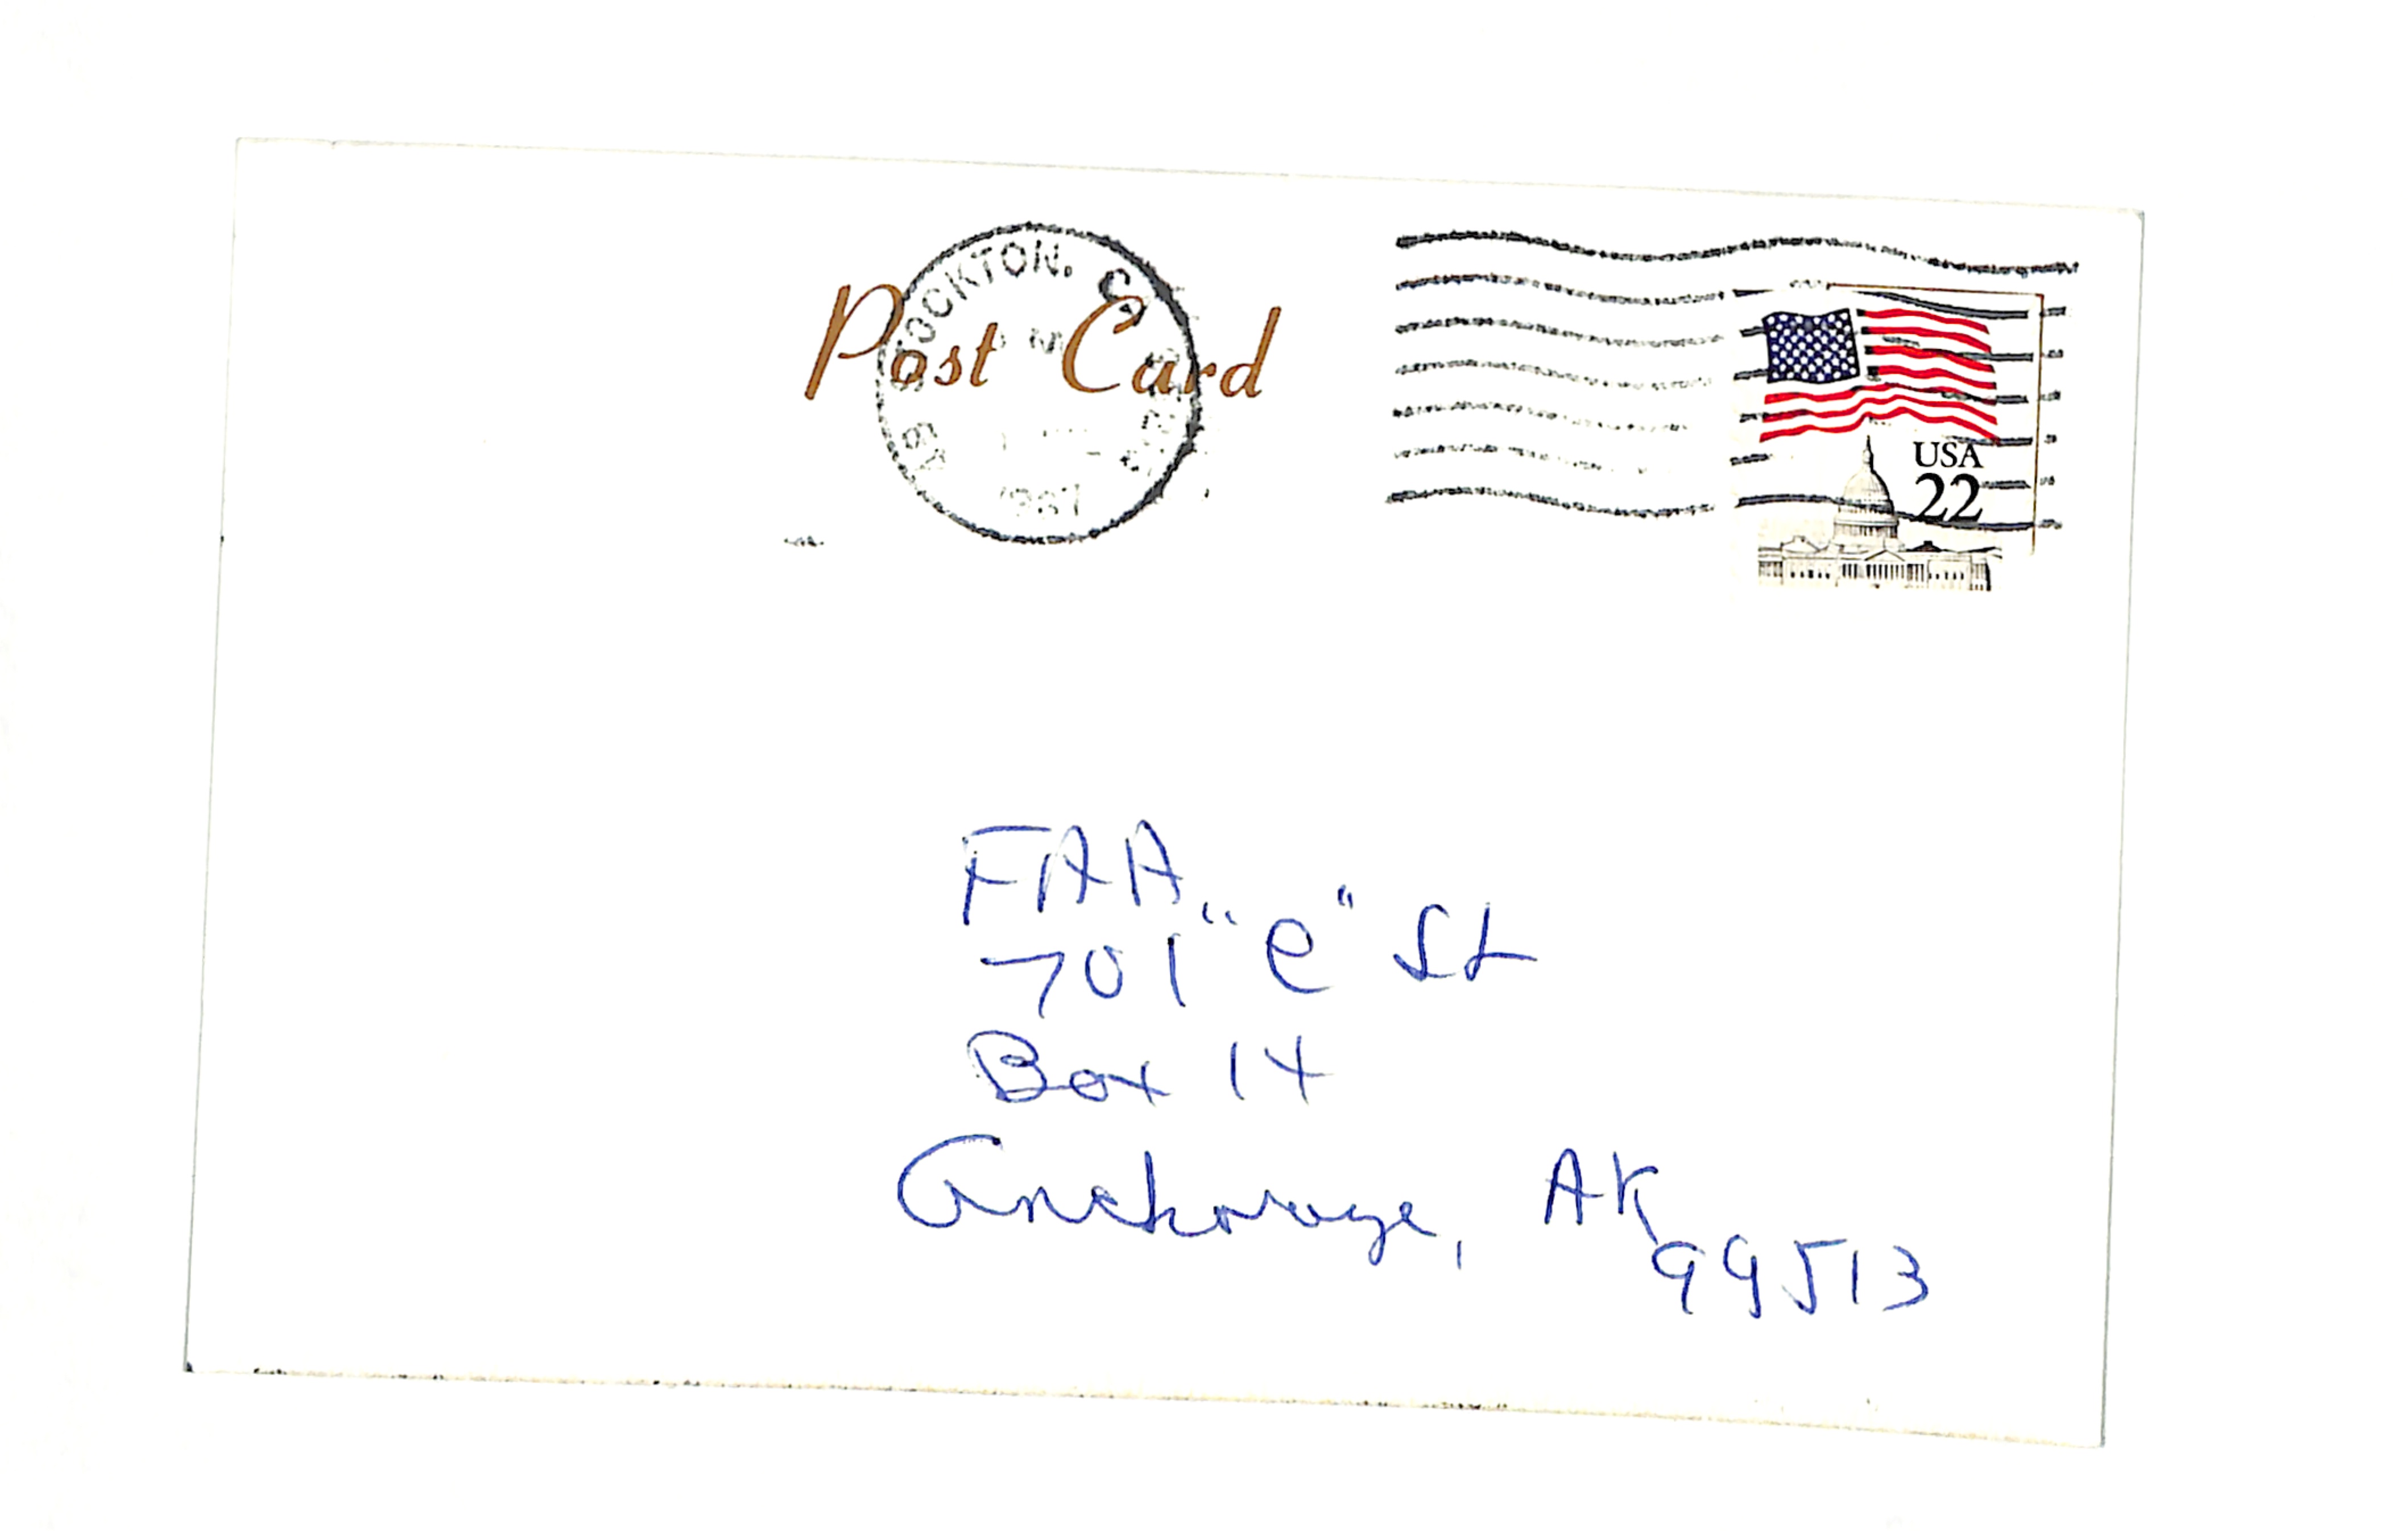 Post Card
STOCKTON, CA
1987
USA
22
FAA
701 "C" St
Box 14
Anchorage, AK
99513